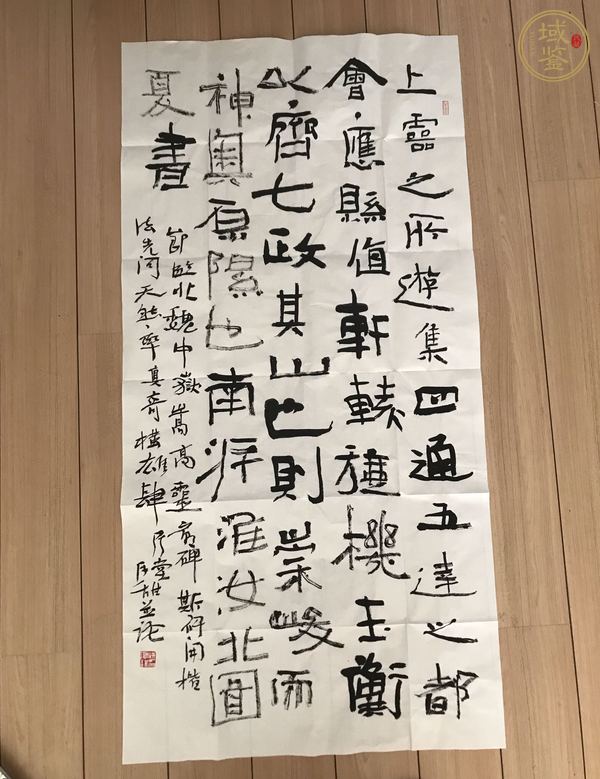 上靈之所遊集四通五達之都
會應縣值軒轅璇機玉衡
以齊七政其山也則崇峻而
神奧原隰也南沂淮汝北圖
夏書
節臨北魏中嶽嵩高靈廟碑斯碑開楷
法先河天然率真奇橫雄肆
並論
域鉴